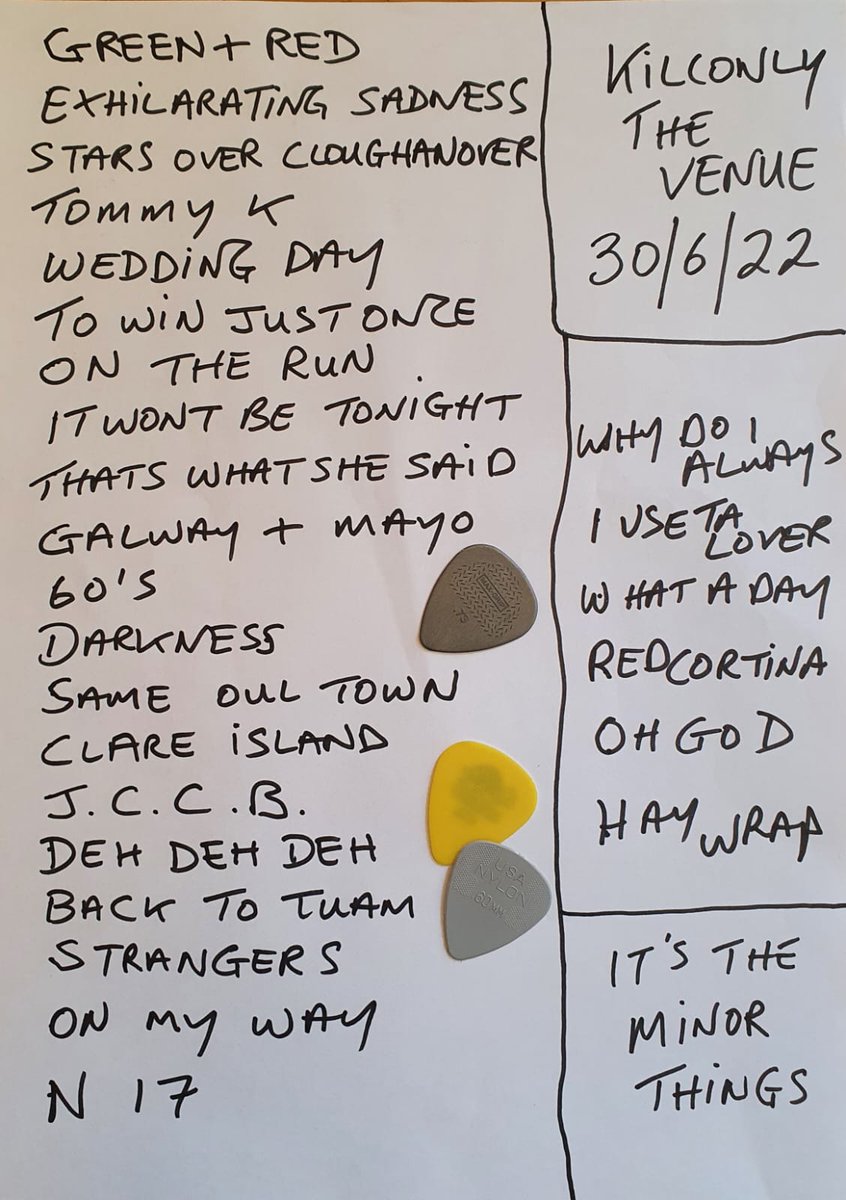 GREEN + RED
EXHILARATING SADNESS
STARS OVER CLOUGHANOVER
TOMMY K
WEDDING DAY
TO WIN JUST ONCE
ON THE RUN
IT WONT BE TONIGHT
THATS WHAT SHE SAID
GALWAY + MAYO
60'S
DARKNESS
SAME OUL TOWN
CLARE ISLAND
J.C.C.B.
DEH DEH DEH
BACK TO TUAM
STRANGERS
ON MY WAY
N 17
KILCONLY
THE
VENUE
30/6/22
WHY DO I
ALWAYS
I USETA
LOVER
WHAT A DAY
RED CORTINA
OH GOD
HAY WRAP
IT'S THE
MINOR
THINGS
.73
USA
NYLON
.60mm